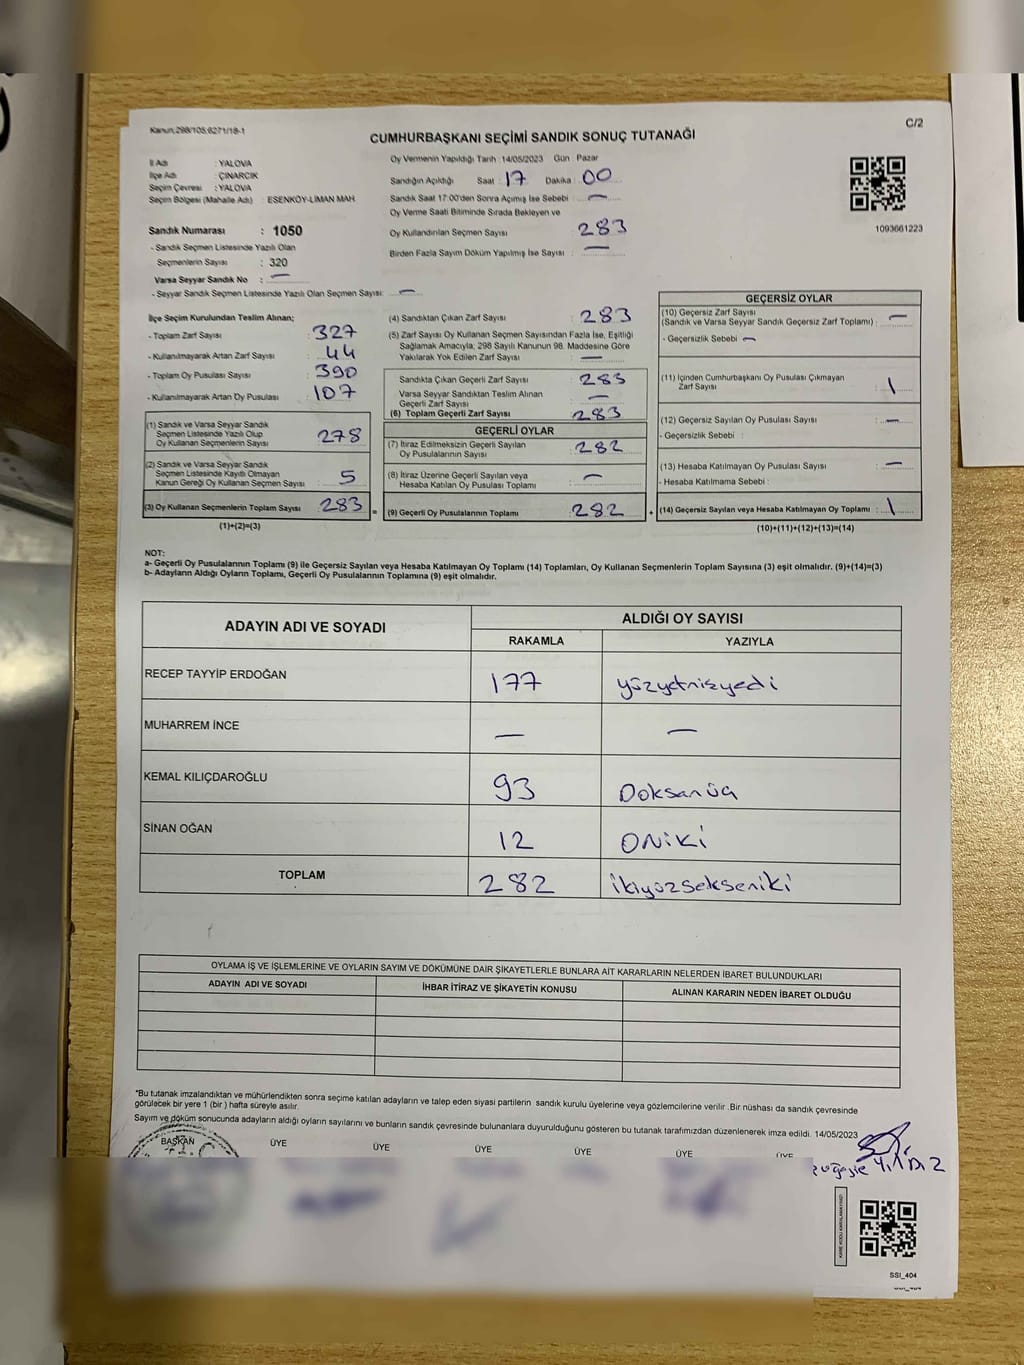 Kanun;298/105;6271/18-1
C/2
CUMHURBAŞKANI SEÇİMİ SANDIK SONUÇ TUTANAĞI
İl Adı : YALOVA
İlçe Adı : ÇINARCIK
Seçim Çevresi : YALOVA
Seçim Bölgesi (Mahalle Adı) : ESENKÖY-LİMAN MAH
Sandık Numarası : 1050
- Sandık Seçmen Listesinde Yazılı Olan
Seçmenlerin Sayısı : 320
Varsa Seyyar Sandık No : —
- Seyyar Sandık Seçmen Listesinde Yazılı Olan Seçmen Sayısı: —
Oy Vermenin Yapıldığı Tarih :14/05/2023 Gün : Pazar
Sandığın Açıldığı Saat : 17 Dakika : 00
Sandık Saat 17:00'den Sonra Açımış İse Sebebi : —
Oy Verme Saati Bitiminde Sırada Bekleyen ve
Oy Kullandırılan Seçmen Sayısı : 283
Birden Fazla Sayım Döküm Yapılmış İse Sayısı : —
1093661223
İlçe Seçim Kurulundan Teslim Alınan;
- Toplam Zarf Sayısı : 327
- Kullanılmayarak Artan Zarf Sayısı : 44
- Toplam Oy Pusulası Sayısı : 390
- Kullanılmayarak Artan Oy Pusulası : 107
(1) Sandık ve Varsa Seyyar Sandık
Seçmen Listesinde Yazılı Olup
Oy Kullanan Seçmenlerin Sayısı : 278
(2) Sandık ve Varsa Seyyar Sandık
Seçmen Listesinde Kayıtlı Olmayan
Kanun Gereği Oy Kullanan Seçmen Sayısı : 5
(3) Oy Kullanan Seçmenlerin Toplam Sayısı : 283 =
(1)+(2)=(3)
(4) Sandıktan Çıkan Zarf Sayısı : 283
(5) Zarf Sayısı Oy Kullanan Seçmen Sayısından Fazla İse, Eşitliği
Sağlamak Amacıyla; 298 Sayılı Kanunun 98. Maddesine Göre
Yakılarak Yok Edilen Zarf Sayısı : —
Sandıkta Çıkan Geçerli Zarf Sayısı : 283
Varsa Seyyar Sandıktan Teslim Alınan
Geçerli Zarf Sayısı : —
(6) Toplam Geçerli Zarf Sayısı : 283
GEÇERLİ OYLAR
(7) İtiraz Edilmeksizin Geçerli Sayılan
Oy Pusulalarının Sayısı : 282
(8) İtiraz Üzerine Geçerli Sayılan veya
Hesaba Katılan Oy Pusulası Toplamı : —
(9) Geçerli Oy Pusulalarının Toplamı : 282 +
GEÇERSİZ OYLAR
(10) Geçersiz Zarf Sayısı
(Sandık ve Varsa Seyyar Sandık Geçersiz Zarf Toplamı) : —
- Geçersizlik Sebebi : —
(11) İçinden Cumhurbaşkanı Oy Pusulası Çıkmayan
Zarf Sayısı : 1
(12) Geçersiz Sayılan Oy Pusulası Sayısı : —
- Geçersizlik Sebebi :
(13) Hesaba Katılmayan Oy Pusulası Sayısı : —
- Hesaba Katılmama Sebebi :
(14) Geçersiz Sayılan veya Hesaba Katılmayan Oy Toplamı : 1
(10)+(11)+(12)+(13)=(14)
NOT:
a- Geçerli Oy Pusulalarının Toplamı (9) ile Geçersiz Sayılan veya Hesaba Katılmayan Oy Toplamı (14) Toplamları, Oy Kullanan Seçmenlerin Toplam Sayısına (3) eşit olmalıdır. (9)+(14)=(3)
b- Adayların Aldığı Oyların Toplamı, Geçerli Oy Pusulalarının Toplamına (9) eşit olmalıdır.
ADAYIN ADI VE SOYADI ALDIĞI OY SAYISI
RAKAMLA YAZIYLA
RECEP TAYYİP ERDOĞAN 177 yüzyetmişyedi
MUHARREM İNCE — —
KEMAL KILIÇDAROĞLU 93 Doksanüç
SİNAN OĞAN 12 ONİKİ
TOPLAM 282 ikiyüzsekseniki
OYLAMA İŞ VE İŞLEMLERİNE VE OYLARIN SAYIM VE DÖKÜMÜNE DAİR ŞİKAYETLERLE BUNLARA AİT KARARLARIN NELERDEN İBARET BULUNDUKLARI
ADAYIN ADI VE SOYADI İHBAR İTİRAZ VE ŞİKAYETİN KONUSU ALINAN KARARIN NEDEN İBARET OLDUĞU
*Bu tutanak imzalandıktan ve mühürlendikten sonra seçime katılan adayların ve talep eden siyasi partilerin sandık kurulu üyelerine veya gözlemcilerine verilir .Bir nüshası da sandık çevresinde
görülecek bir yere 1 (bir ) hafta süreyle asılır.
Sayım ve döküm sonucunda adayların aldığı oyların sayılarını ve bunların sandık çevresinde bulunanlara duyurulduğunu gösteren bu tutanak tarafımızdan düzenlenerek imza edildi. 14/05/2023
BAŞKAN ÜYE ÜYE ÜYE ÜYE ÜYE ÜYE
YILDIZ
SSI_404